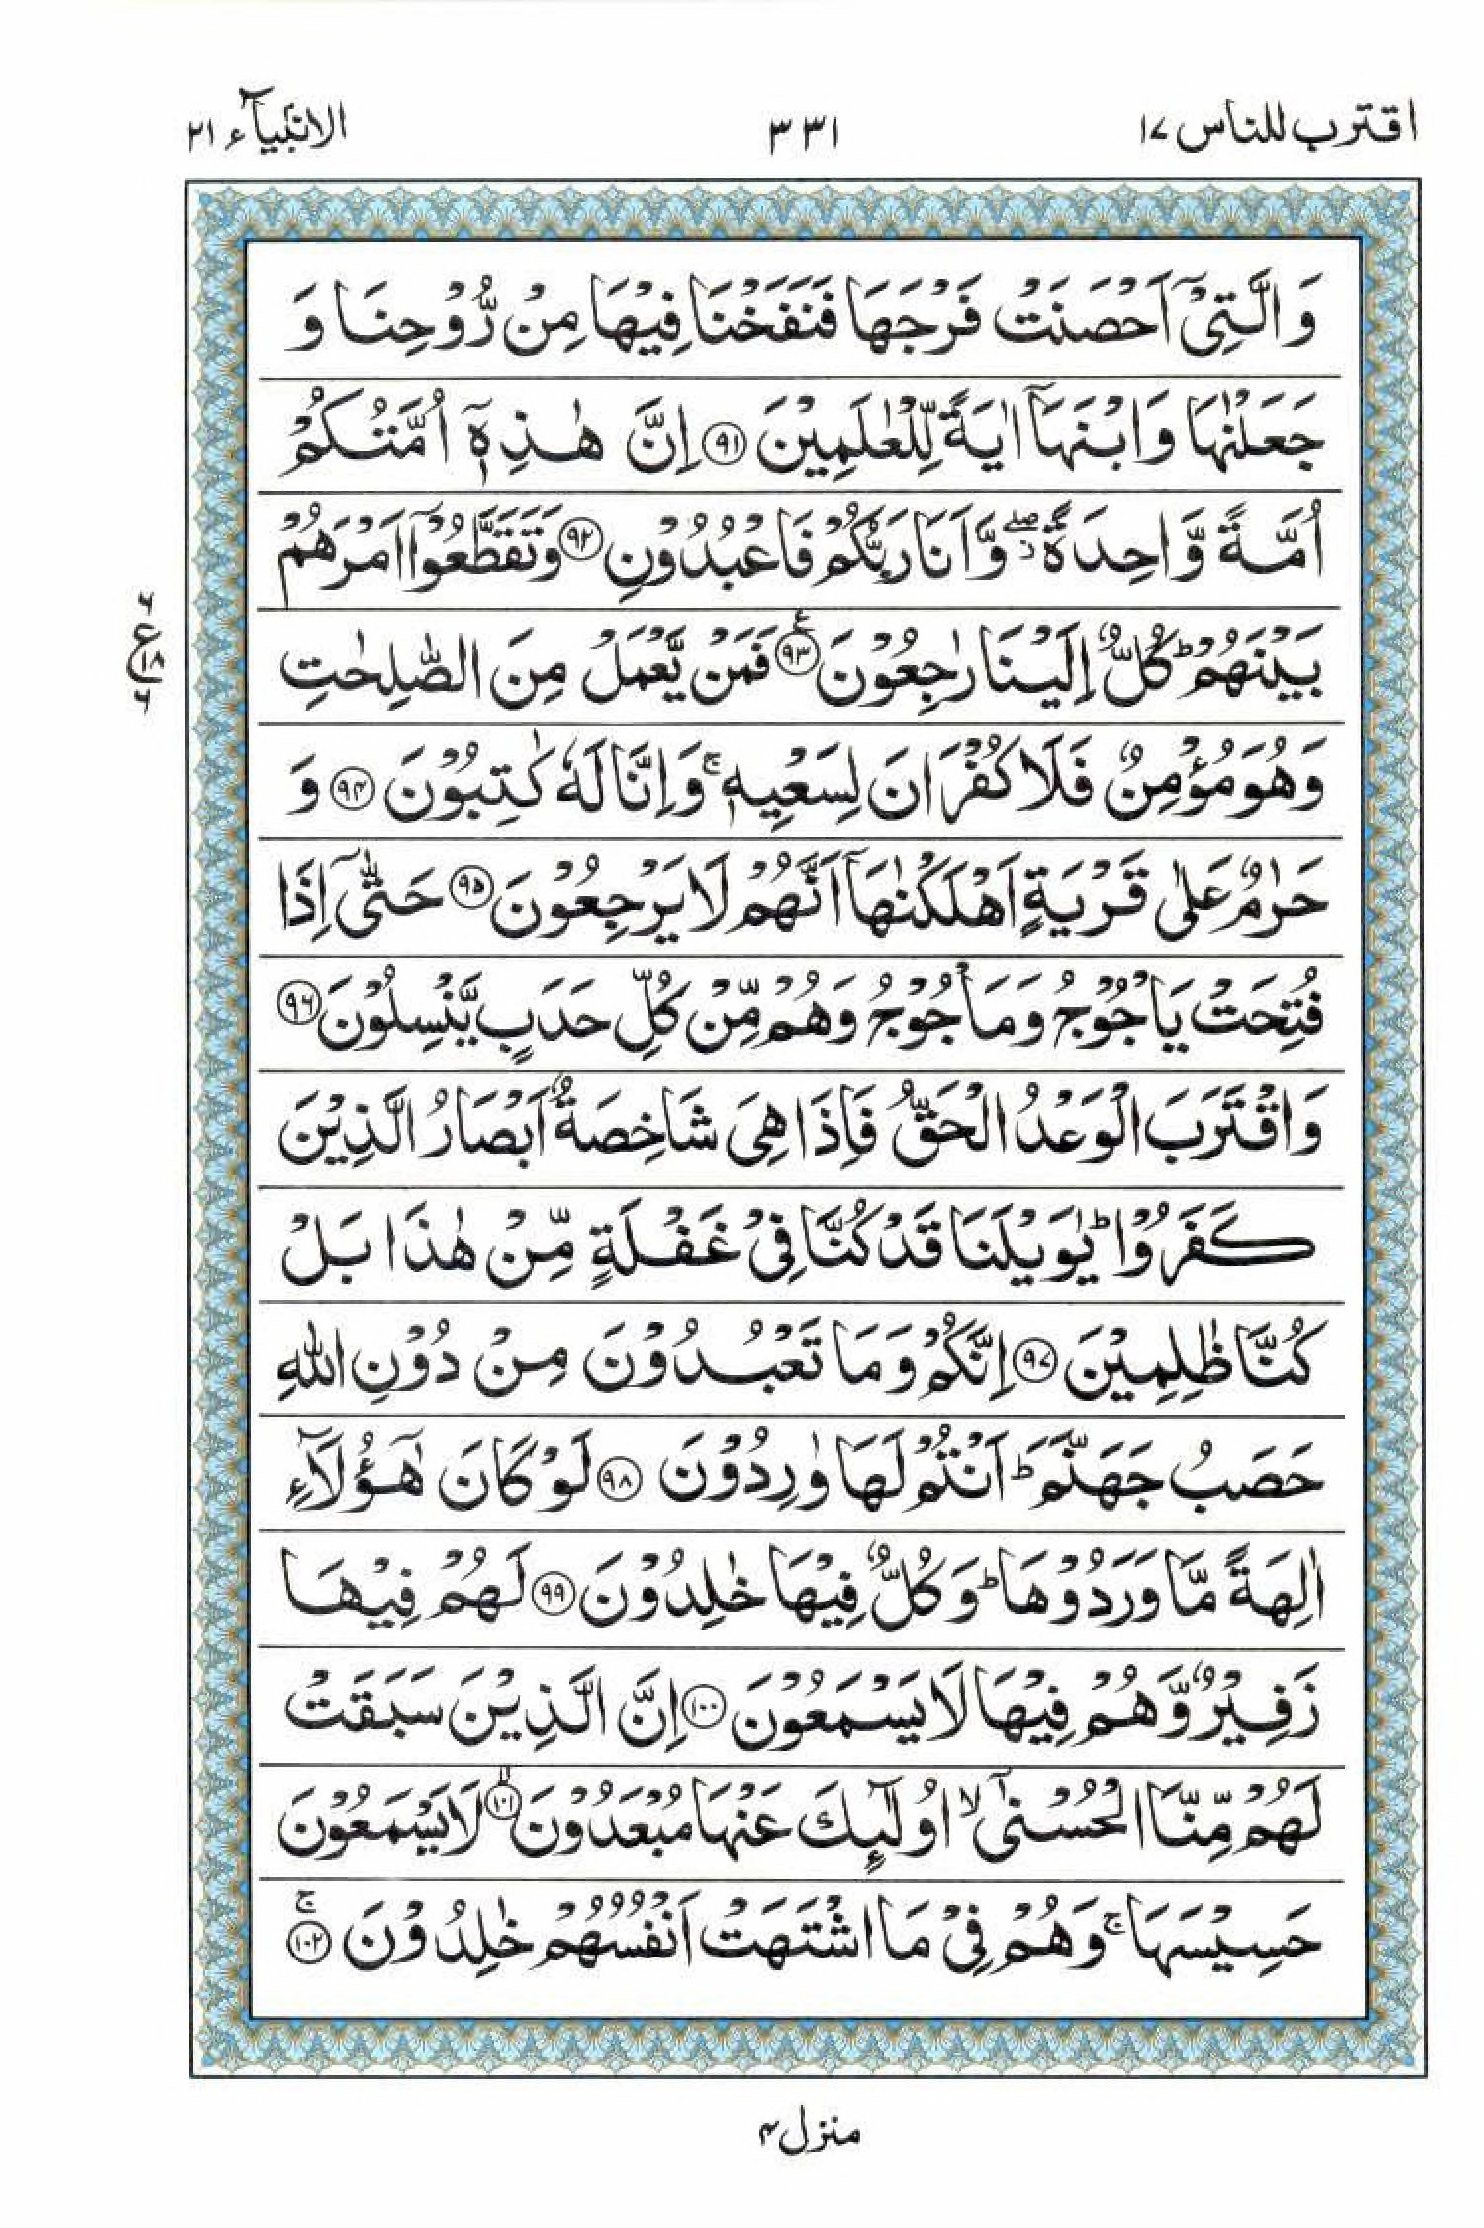 اقترب للناس ١٧
٣٣١
الانبیآء ٢١
وَالَّتِیْۤ اَحْصَنَتْ فَرْجَهَا فَنَفَخْنَا فِیْهَا مِنْ رُّوْحِنَا وَ
جَعَلْنٰهَا وَابْنَهَاۤ اٰیَةً لِّلْعٰلَمِیْنَ ﴿٩١﴾ اِنَّ هٰذِهٖۤ اُمَّتُكُمْ
اُمَّةً وَّاحِدَةً ۖ٘ وَّاَنَا رَبُّكُمْ فَاعْبُدُوْنِ ﴿٩٢﴾ وَتَقَطَّعُوْۤا اَمْرَهُمْ
بَیْنَهُمْ ؕ كُلٌّ اِلَیْنَا رٰجِعُوْنَ ﴿٩٣﴾ ع فَمَنْ یَّعْمَلْ مِنَ الصّٰلِحٰتِ
ع
١٨
٦
وَهُوَ مُؤْمِنٌ فَلَا كُفْرَانَ لِسَعْیِهٖ ۚ وَاِنَّا لَهٗ كٰتِبُوْنَ ﴿٩٤﴾ وَ
حَرٰمٌ عَلٰى قَرْیَةٍ اَهْلَكْنٰهَاۤ اَنَّهُمْ لَا یَرْجِعُوْنَ ﴿٩٥﴾ حَتّٰۤى اِذَا
فُتِحَتْ یَاْجُوْجُ وَمَاْجُوْجُ وَهُمْ مِّنْ كُلِّ حَدَبٍ یَّنْسِلُوْنَ ﴿٩٦﴾
وَاقْتَرَبَ الْوَعْدُ الْحَقُّ فَاِذَا هِیَ شَاخِصَةٌ اَبْصَارُ الَّذِیْنَ
كَفَرُوْا ؕ یٰوَیْلَنَا قَدْ كُنَّا فِیْ غَفْلَةٍ مِّنْ هٰذَا بَلْ
كُنَّا ظٰلِمِیْنَ ﴿٩٧﴾ اِنَّكُمْ وَمَا تَعْبُدُوْنَ مِنْ دُوْنِ اللّٰهِ
حَصَبُ جَهَنَّمَ ؕ اَنْتُمْ لَهَا وٰرِدُوْنَ ﴿٩٨﴾ لَوْ كَانَ هٰۤؤُلَآءِ
اٰلِهَةً مَّا وَرَدُوْهَا ؕ وَكُلٌّ فِیْهَا خٰلِدُوْنَ ﴿٩٩﴾ لَهُمْ فِیْهَا
زَفِیْرٌ وَّهُمْ فِیْهَا لَا یَسْمَعُوْنَ ﴿١٠٠﴾ اِنَّ الَّذِیْنَ سَبَقَتْ
لَهُمْ مِّنَّا الْحُسْنٰۤى ۙ اُولٰٓىِٕكَ عَنْهَا مُبْعَدُوْنَ ﴿١٠١﴾ ۙ لَا یَسْمَعُوْنَ
حَسِیْسَهَا ۚ وَهُمْ فِیْ مَا اشْتَهَتْ اَنْفُسُهُمْ خٰلِدُوْنَ ﴿١٠٢﴾ ۚ
منزل ٤